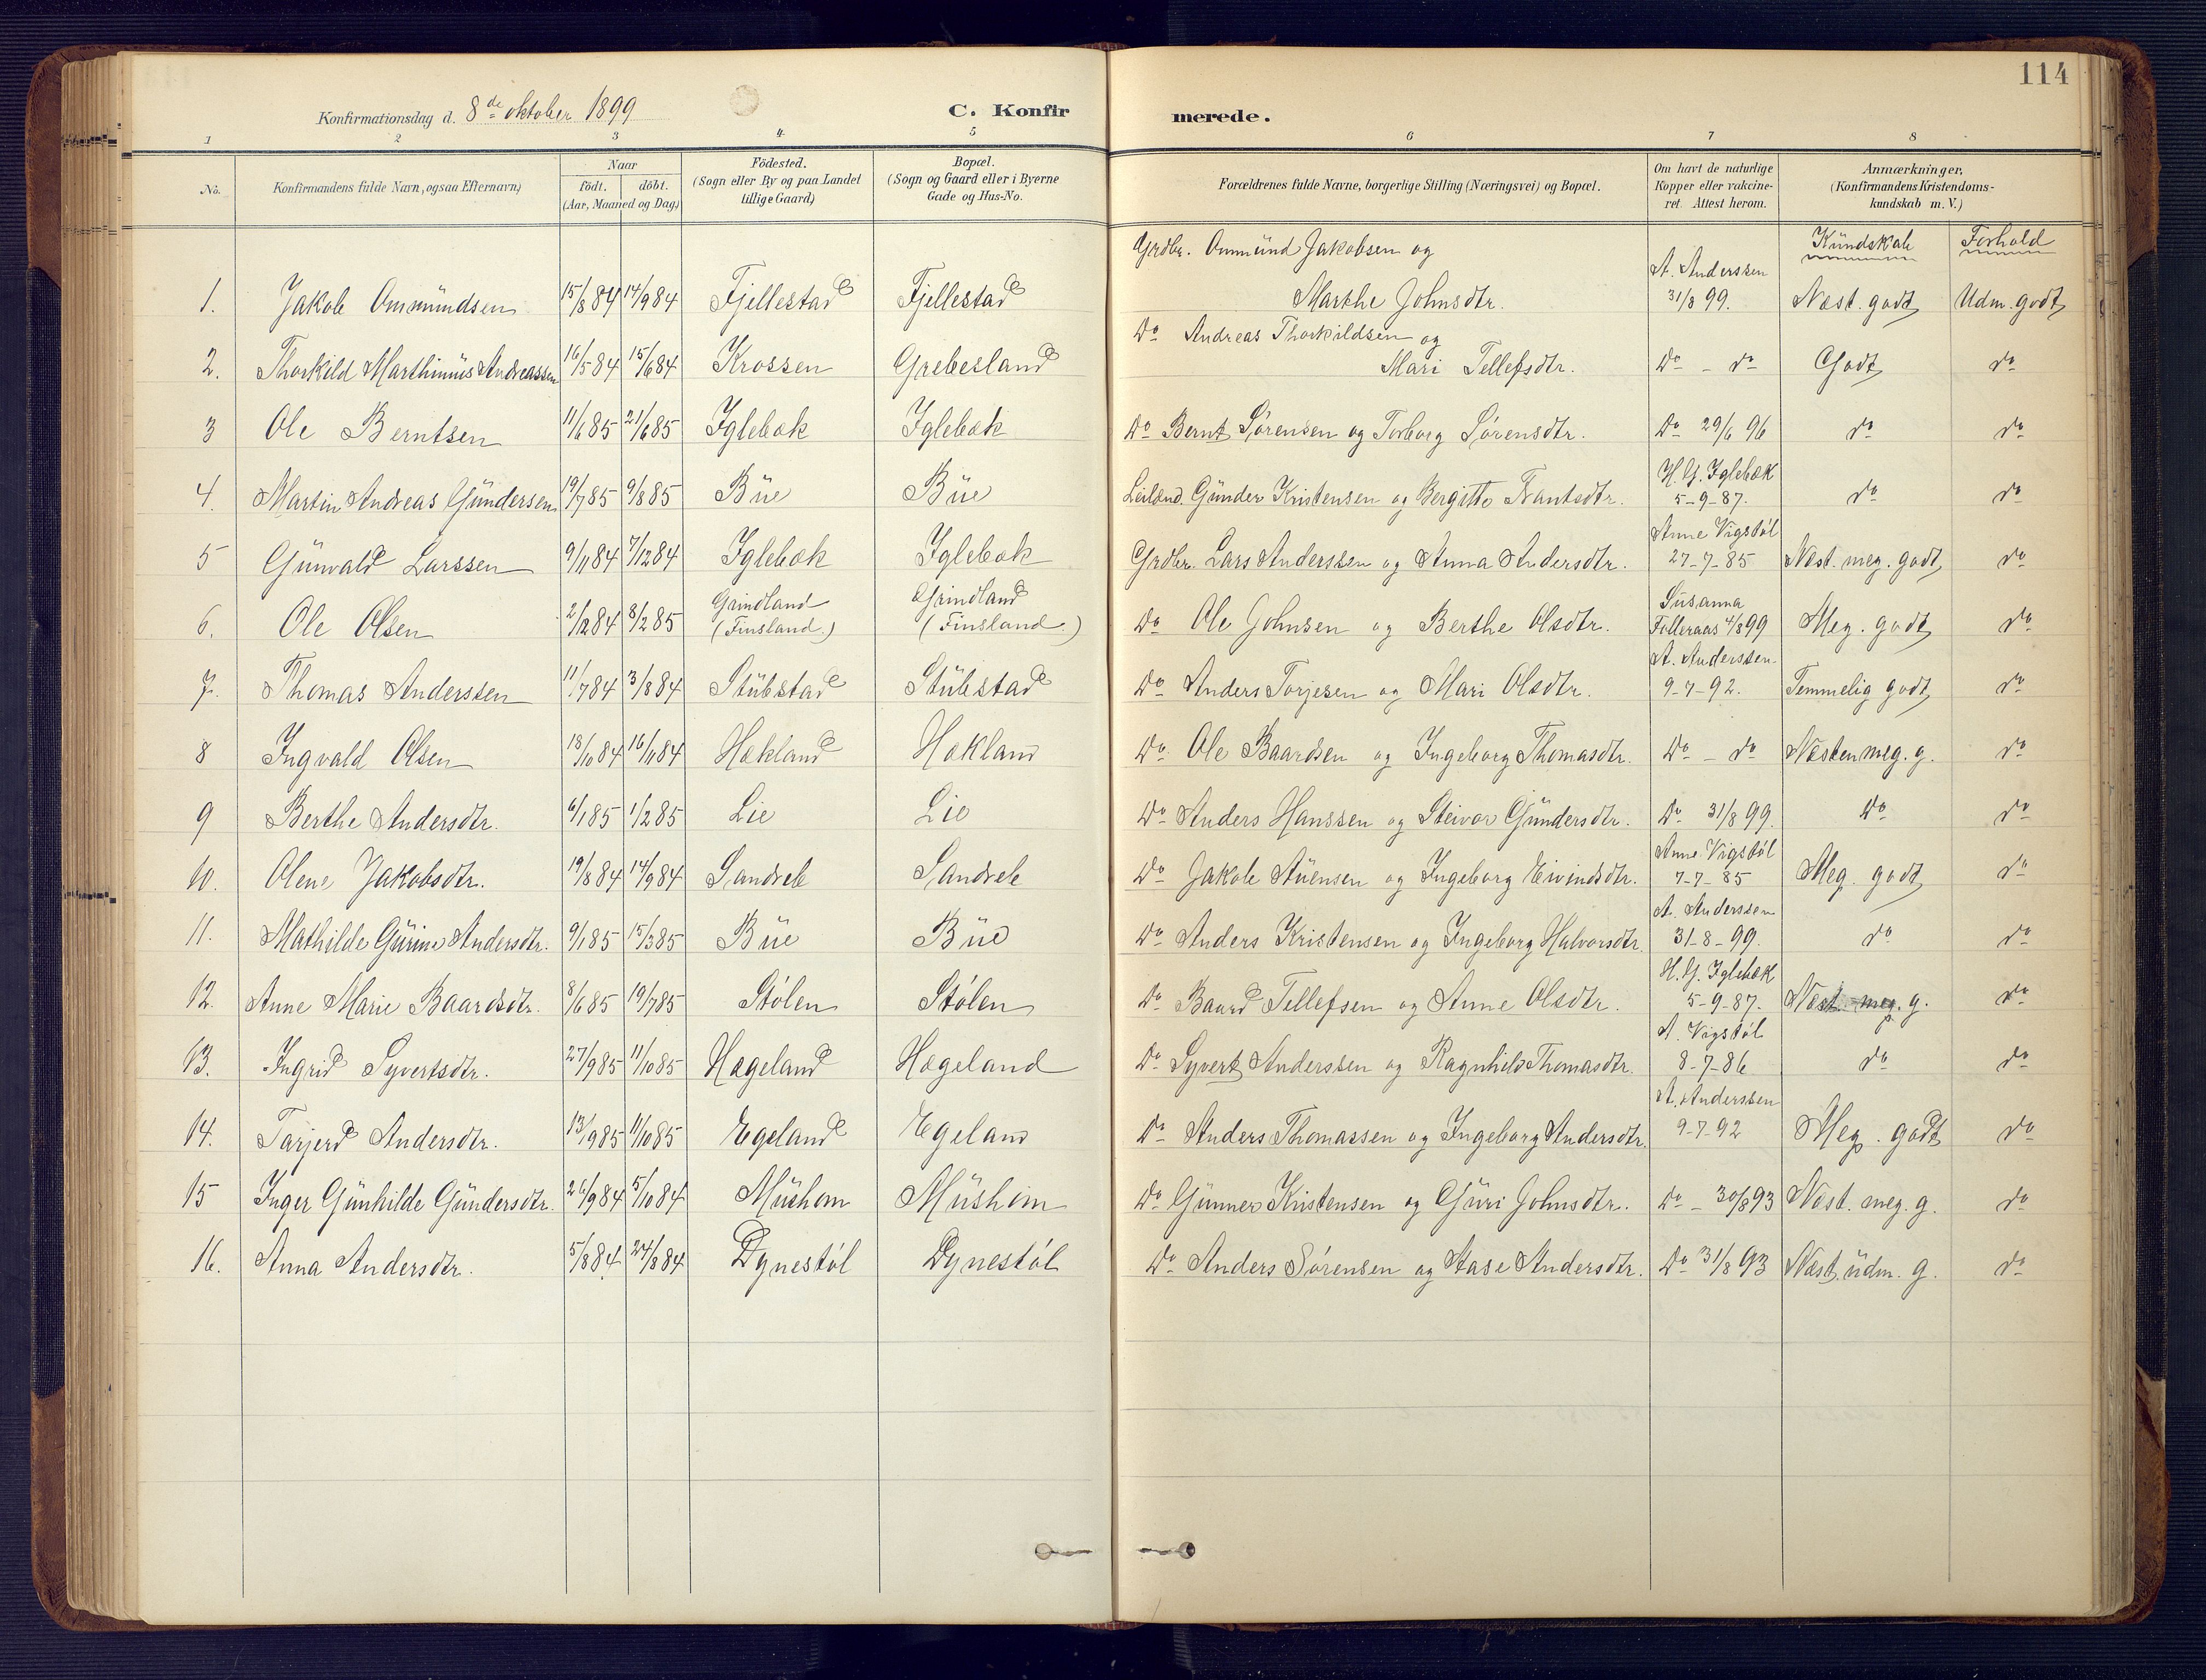 114
Konfirmationsdag d. 8de oktober 1899
C. Konfirmerede.
1 2 3 4 5 6 7 8
No. Konfirmandens fulde Navn, ogsaa Efternavn) Naar födt. döbt. (Aar, Maaned og Dag) Födested. (Sogn eller By og paa Landet tillige Gaard) Bopæl. (Sogn og Gaard eller i Byerne Gade og Hus-No. Forældrenes fulde Navne, borgerlige Stilling (Næringsvei) og Bopæl. Om havt de naturlige Kopper eller vakcineret. Attest herom. Anmærkninger, (Konfirmandens Kristendomskundskab m. V.)
Kundskab Forhold
1. Jakob Ommundsen 15/8 84 14/9 84 Fjellestad Fjellestad Grdbr. Ommund Jakobsen og Marthe Johnsdtr. A. Anderssen 31/8 99. Næst. godt Udm. godt
2. Thorkild Marthinius Andreassen 16/5 84 15/6 84 Krossen Grebesland Do Andreas Thorkildsen og Mari Tellefsdtr. Do - do Godt do
3 Ole Berntsen 11/6 85 21/6 85 Iglebæk Iglebæk Do Bernt Sørensen og Torborg Sørensdtr. Do 29/6 96 do do
4. Martin Andreas Gundersen 19/7 85 9/8 85 Bue Bue Leilænd. Gunder Kristensen og Bergitte Tvantsdtr. H. G. Iglebæk 5-9-87. do do
5 Gunvald Larssen 9/11 84 7/12 84 Iglebæk Iglebæk Grdbr. Lars Anderssen og Anna Andersdtr. Anne Vigstøl 27-7-85 Næst. meg. godt do
6. Ole Olsen 2/12 84 8/2 85 Grindland (Finsland.) Grindland (Finsland.) Do Ole Johnsen og Berthe Olsdtr. Susanna Følleraas 4/8 99 Meg. godt do
7. Thomas Anderssen 11/7 84 3/8 84 Stubstad Stubstad Do Anders Torjesen og Mari Olsdtr. A. Anderssen 9-7-92. Temmelig godt do
8 Ingvald Olsen 18/10 84 16/11 84 Hakland Hakland Do Ole Baardsen og Ingeborg Thomasdtr. Do - do Næsten meg. g. do
9 Berthe Andersdtr. 6/1 85 1/2 85 Lie Lie Do Anders Hanssen og Steivor Gundersdtr. Do 31/8 99. Do do
10. Olene Jakobsdtr. 19/8 84 14/9 84 Sandreb Sandreb Do Jakob Auensen og Ingeborg Eivindsdtr. Anne Vigstøl 7-7-85 Meg. godt do
11. Mathilde Gurine Andersdtr. 9/1 85 15/3 85 Bue Bue Do Anders Kristensen og Ingeborg Halvorsdtr. A. Anderssen 31-8-99. do do
12. Anne Marie Baardsdtr. 8/6 85 19/7 85 Stølen Stølen Do Baard Tellefsen og Anne Olsdtr. H. G. Iglebæk 5-9-87. Næst. meg. g. do
13. Ingrid Syvertsdtr. 27/9 85 11/10 85 Hægeland Hægeland Do Syvert Anderssen og Ragnhild Thomasdtr. A. Vigstøl 8-7-86 do do
14. Tarjerd Andersdtr. 13/9 85 11/10 85 Egeland Egeland Do Anders Thomassen og Ingeborg Andersdtr. A. Anderssen 9-7-92 Meg. godt do
15 Inger Gunhilde Gundersdtr. 26/9 84 5/10 84 Mushom Mushom Do Gunner Kristensen og Guri Johnsdtr. Do - 30/8 93 Næst. meg. g. do
16. Anna Andersdtr. 5/8 84 24/8 84 Dynestøl Dynestøl Do Anders Sørensen og Aase Andersdtr. Do 31/8 93 Næst. udm. g. do